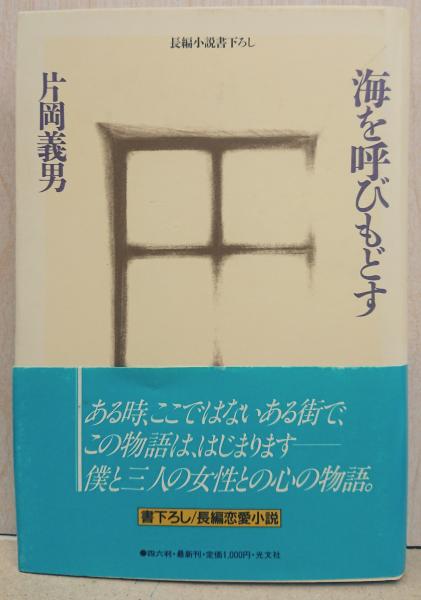 長編小説書下ろし
海を呼びもどす
片岡義男
ある時、ここではないある街で、
この物語は、はじまります——
僕と三人の女性との心の物語。
書下ろし/長編恋愛小説
●四六判・最新刊・定価1,000円・光文社